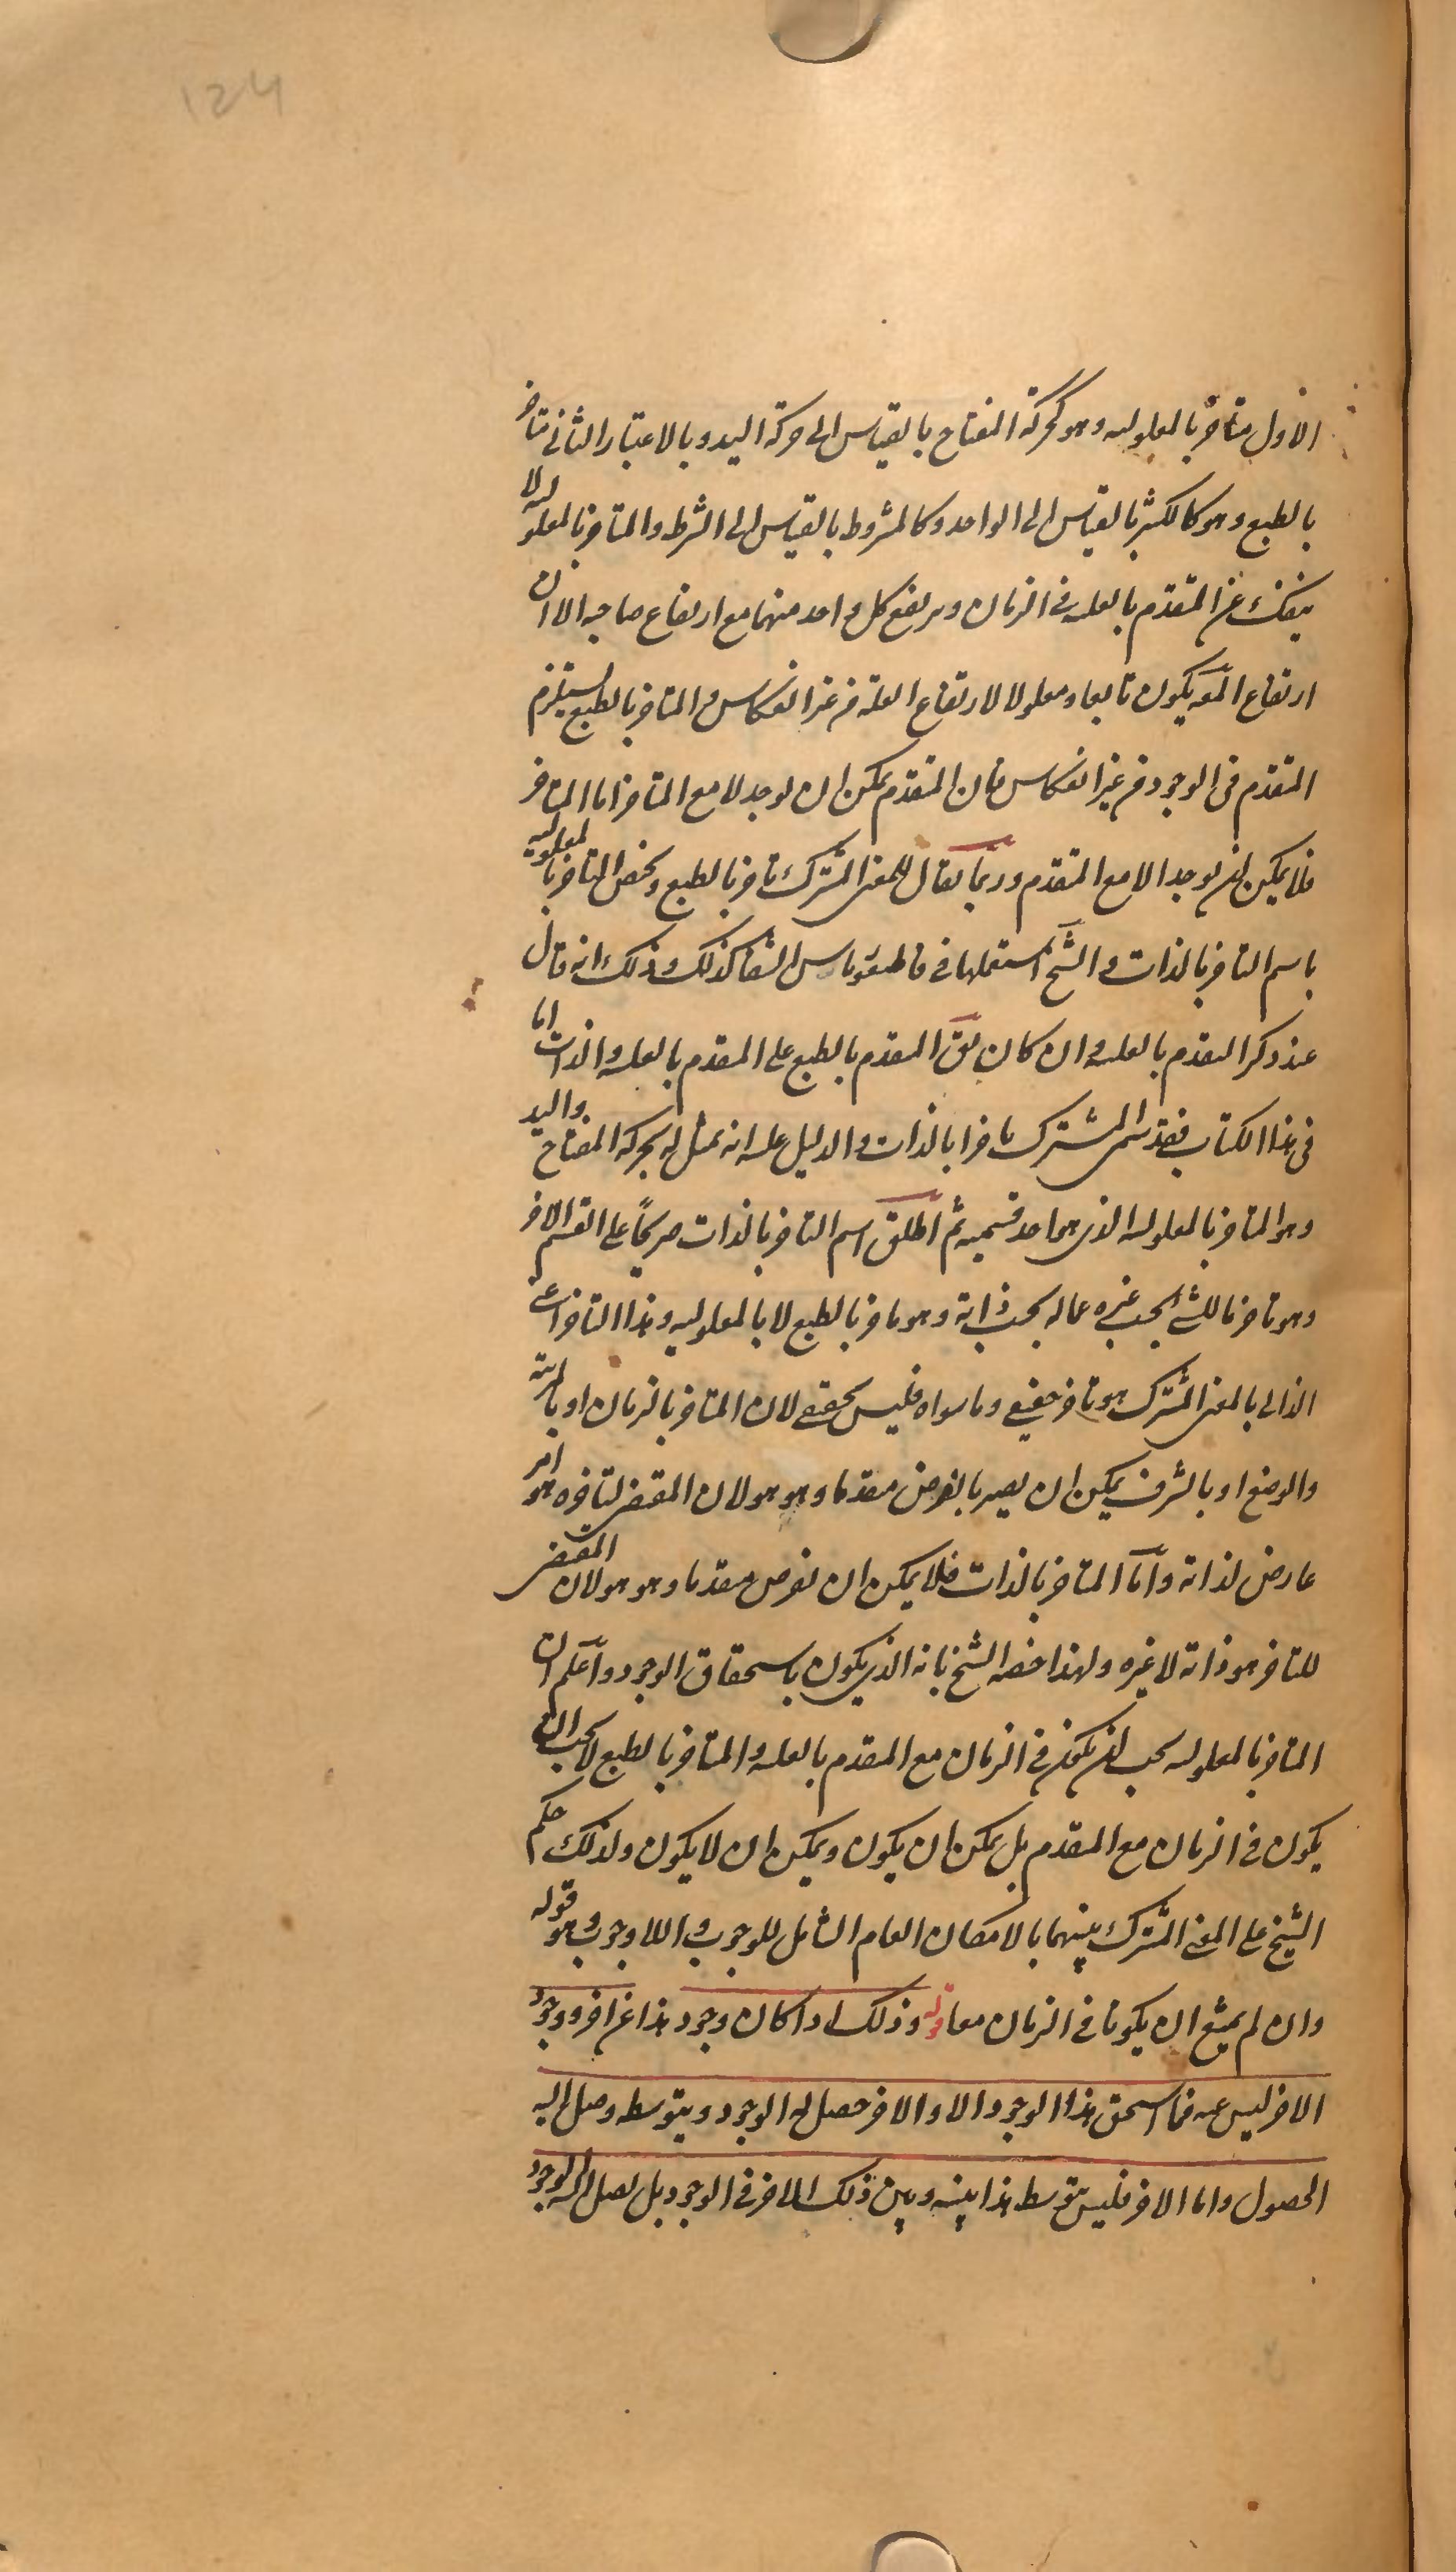 124
الاول متأخر بالمعلولیه وهو کحرکة المفتاح بالقیاس الی حرکة الید وبالاعتبار الثانی متأخر
بالطبع وهو کالکثیر بالقیاس الی الواحد وکالمشروط بالقیاس الی الشرط والمتأخر بالمعلولیه لا
ینفک عن المتقدم بالعلیه فی الزمان ویرتفع کل واحد منهما مع ارتفاع صاحبه الا ان
ارتفاع المعه یکون تابعا ومعلولا لارتفاع العلة من غیر انعکاس والمتأخر بالطبع یستلزم
المتقدم فی الوجود من غیر انعکاس فان المتقدم یمکن ان یوجد لا مع المتأخر اما المتأخر
فلا یمکن ان یوجد الا مع المتقدم وربما یقال للمعنی المشترک تأخر بالطبع ویخص التأخر بالمعلولیه
باسم التأخر بالذات والشیخ استعملها فی قاطیغوریاس الشفا کذلک وذلک انه قال
عند ذکر المتقدم بالعلیه وان کان یق المتقدم بالطبع علی المتقدم بالعلیه والذات اما
فی هذا الکتاب فقد سمی المشترک تأخرا بالذات والدلیل علیه انه تمثل له بحرکة المفتاح والید
وهو المتأخر بالمعلولیه الذی هو احد قسمیه ثم اطلق اسم التأخر بالذات صریحاً علی القسم الاخر
وهو تأخر ما للشئ بحسب غیره عما له بحسب ذاته وهو تأخر بالطبع لا بالمعلولیه وهذا التأخر اعنی
الذاتی بالمعنی المشترک هو تأخر حقیقی وما سواه فلیس بحقیقی لان المتأخر بالزمان او بالرتبة
والوضع او بالشرف یمکن ان یصیر بالفرض متقدما وهو هو لان المقتضی لتأخره هو امر
عارض لذاته واما المتأخر بالذات فلا یمکن ان یفرض متقدما وهو هو لان المقتضی
للتأخر هو ذاته لا غیره ولهذا خصه الشیخ بانه الذی یکون باستحقاق الوجود واعلم ان
المتأخر بالمعلولیه یجب ان یکون فی الزمان مع المتقدم بالعلیه والمتأخر بالطبع لا یجب ان
یکون فی الزمان مع المتقدم بل یمکن ان یکون ویمکن ان لا یکون ولذلک حکم
الشیخ علی المعنی المشترک بینهما بالامکان العام الشامل للوجوب واللاوجوب وهو قوله
وان لم یمتنع ان یکونا فی الزمان معا قوله وذلک اذا کان وجود هذا عن اخر ووجود
الاخر لیس عنه فما استحق هذا الوجود الا والاخر حصل له الوجود ویتوسطه وصل الیه
الحصول واما الاخر فلیس یتوسط هذا بینه وبین ذلک الاخر فی الوجود بل یصل الیه الوجود